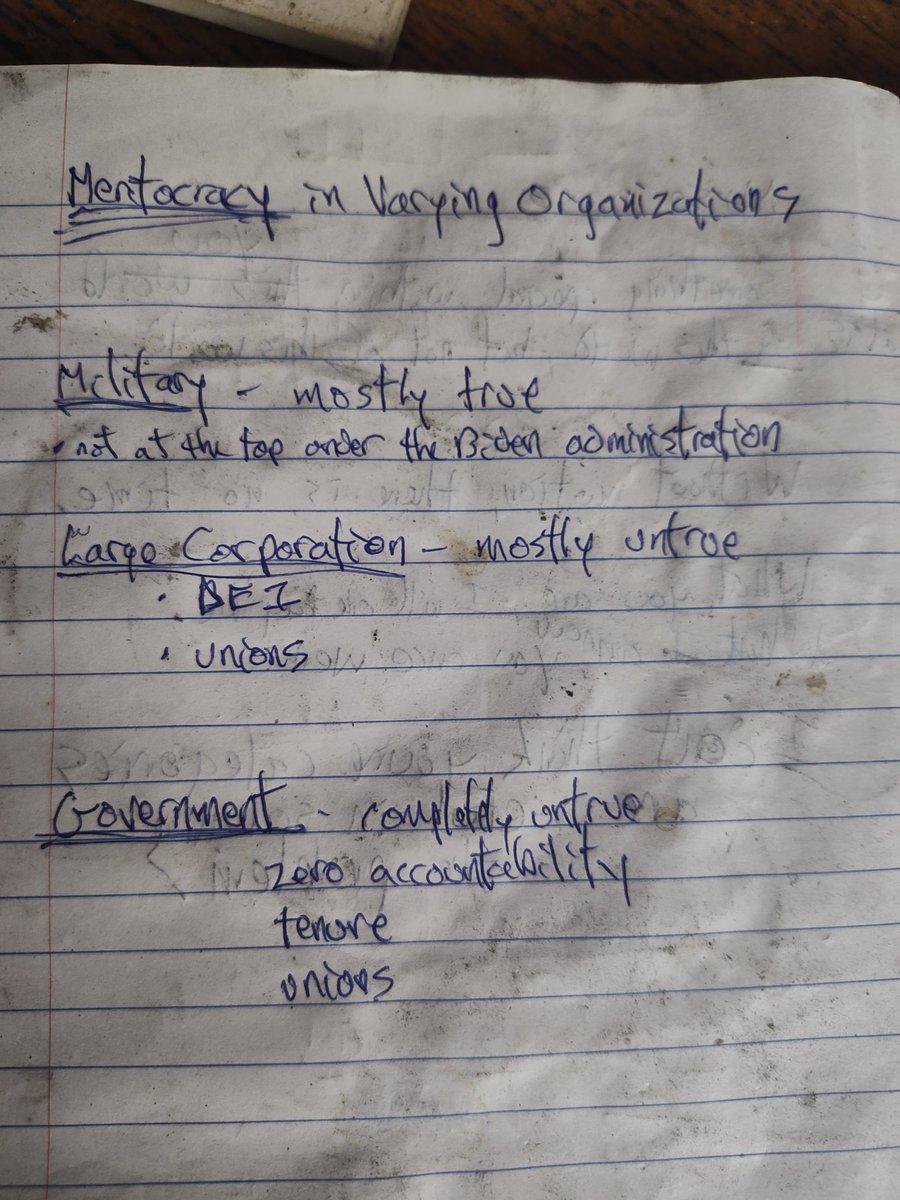 Meritocracy in Varying Organizations
Military - mostly true
• not at the top under the Biden administration
Large Corporation - mostly untrue
• DEI
• unions
Government - completely untrue
zero accountability
tenure
unions